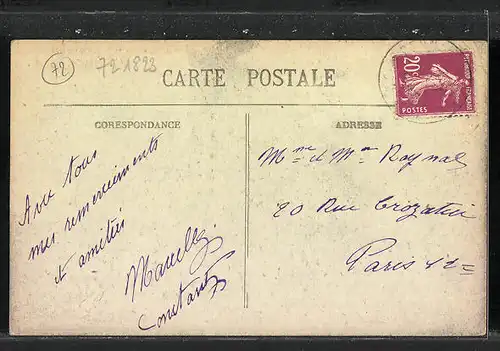 72
721823
CARTE POSTALE
20c
POSTES
CORESPONDANCE
ADRESSE
Avec tous
mes remerciements
et amitiés
Constant
Mme et Mr Raynal
20 Rue Crozatier
Paris 12e